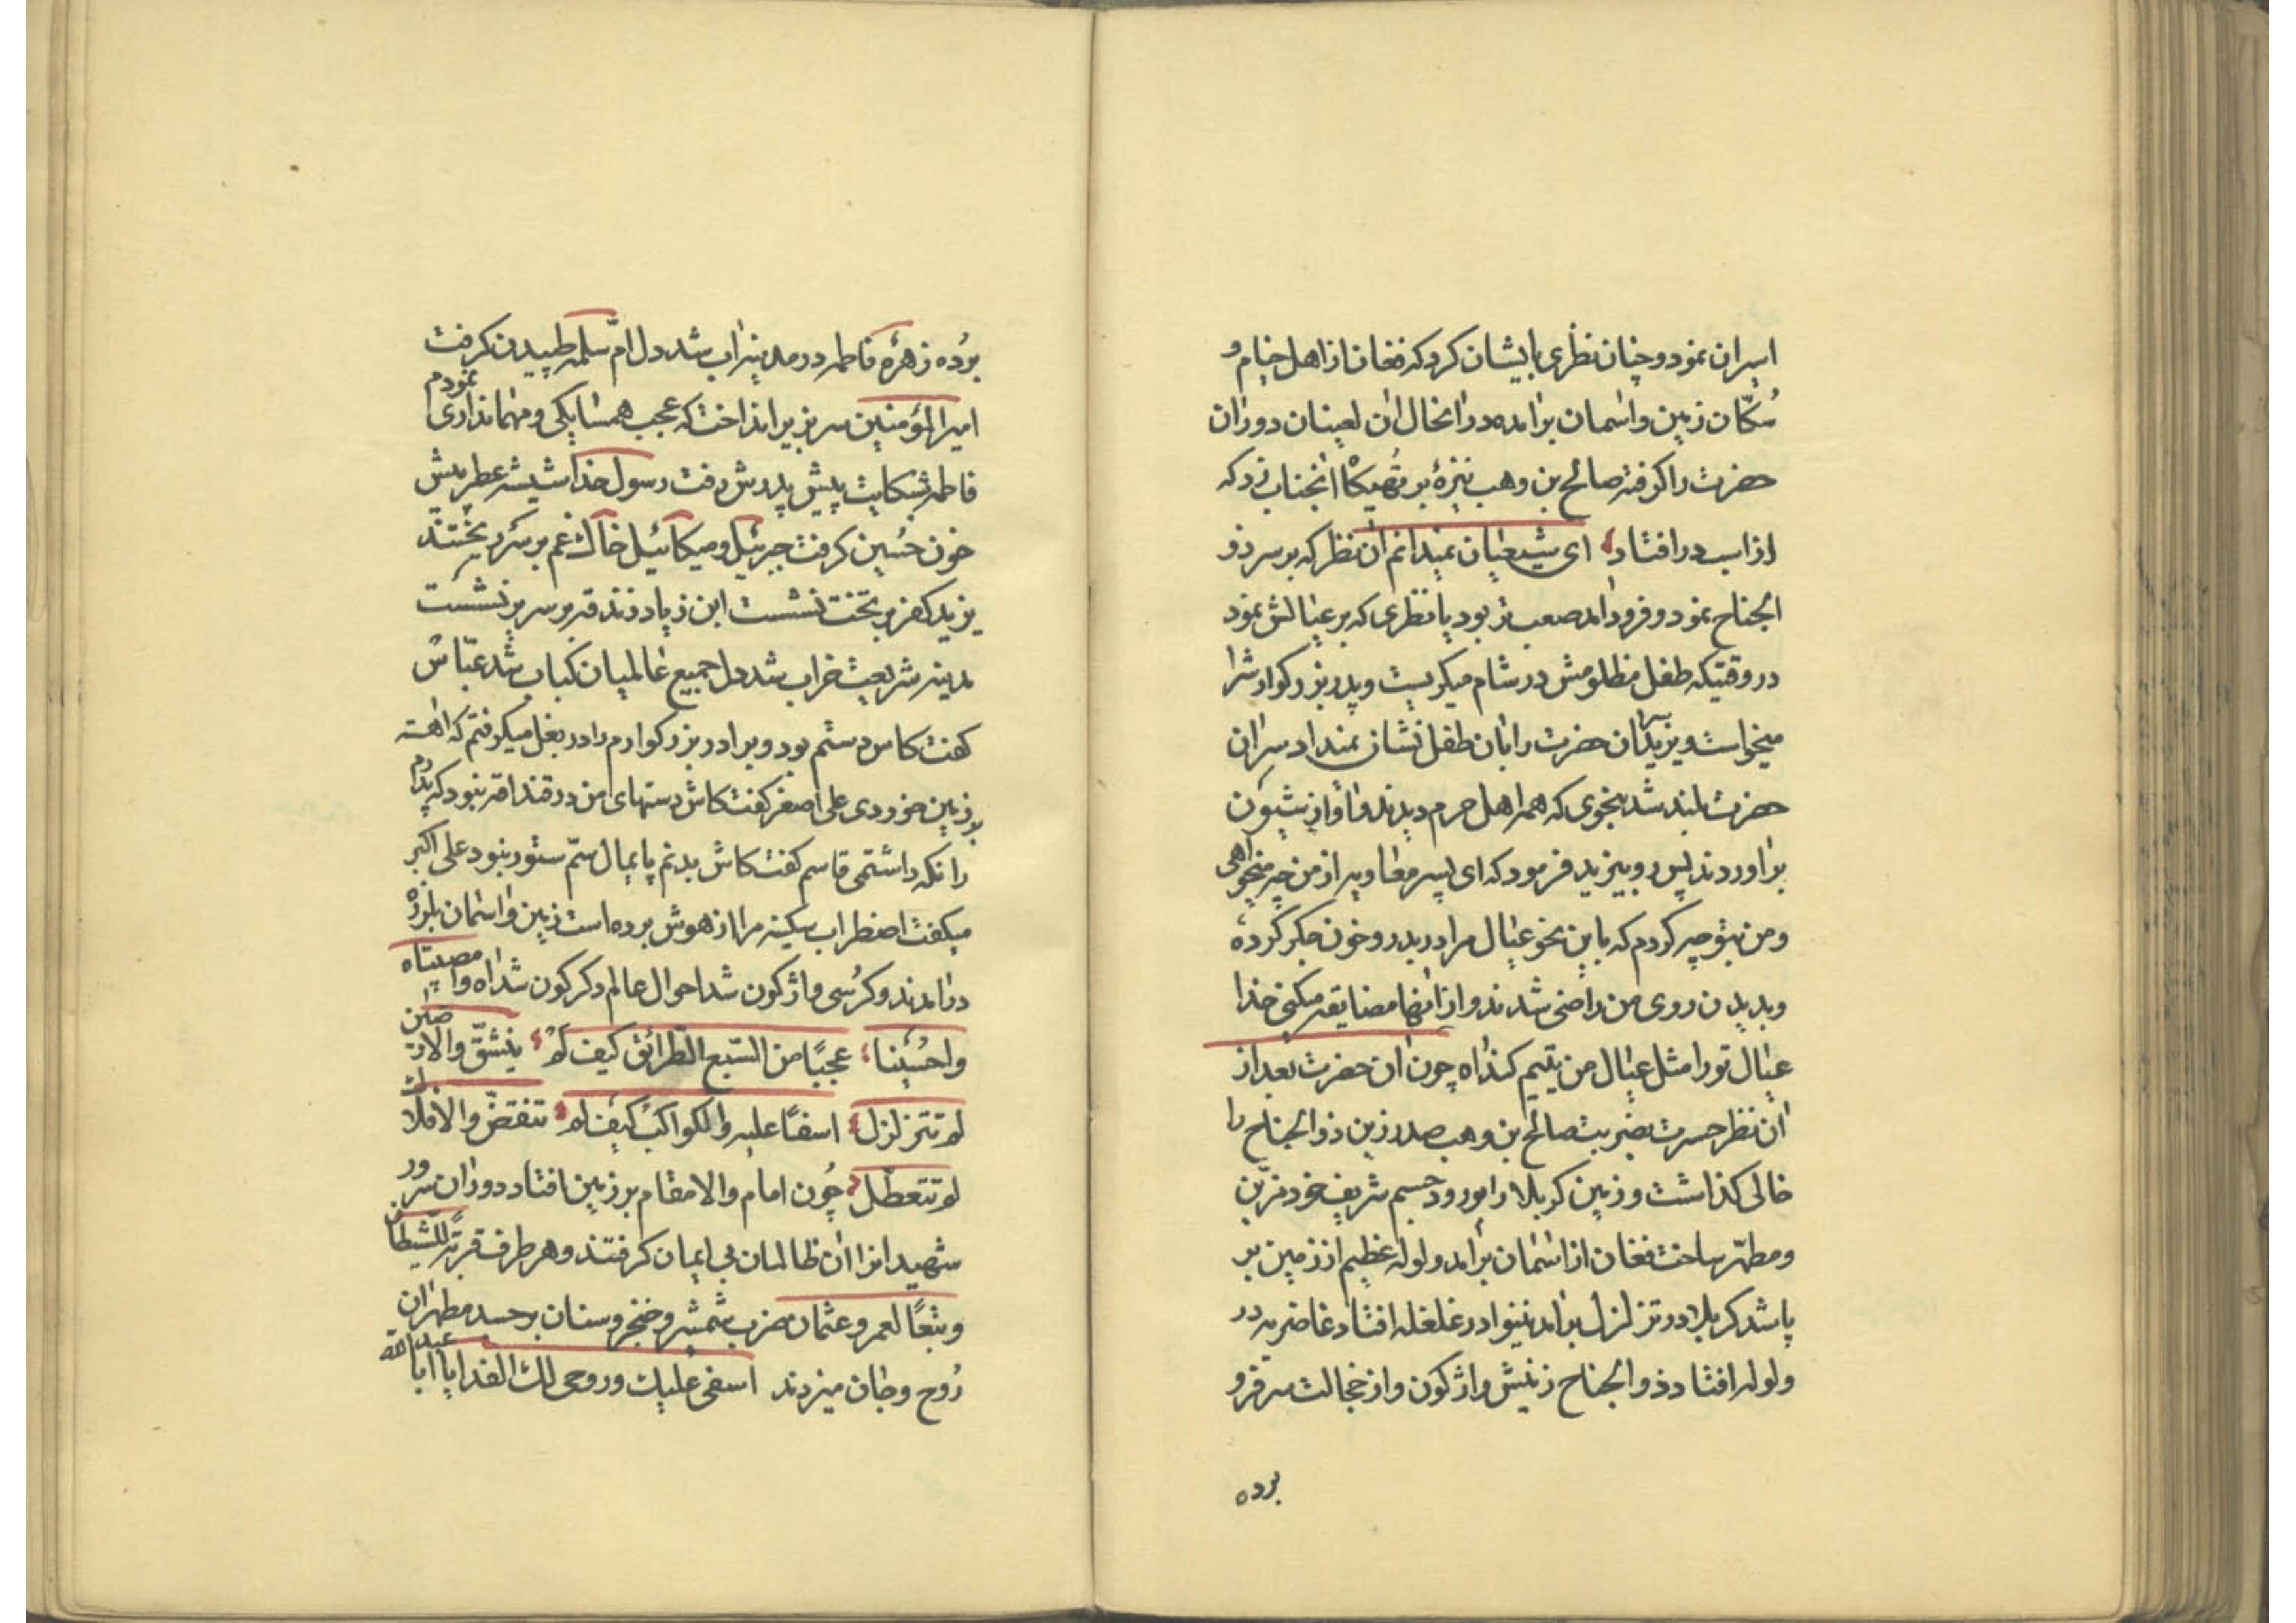 اسیران نمود و چنان نظری بایشان کرد که فغان از اهل خیام و
سُکّان زمین و اسمان برامده در انحال ان لعینان دور ان
حضرت را کرفته صالح بن وهب نیزهٔ بر تهیکاه انجناب زد که
از اسب در افتاد ای شیعیان نمیدانم ان نظر که بر سر ذو
الجناح نمود و فرود امد صعب تر بود یا نظری که بر عیالش نمود
در وقتیکه طفل مظلومش در شام میکریست و پدر بزرکوارش را
میخواست و یزید سر ان حضرت را بان طفل نشان میداد سر ان
حضرت بلند شد بنحوی که همه اهل حرم دیدند و اواز شیون
براوردند پس رو بیزید فرمود که ای پسر معاویه از من چه میخواهی
و من بتو چه کردم که باین نحو عیال مرا در بدر و خون جکر کردهٔ
و بدیدن روی من راضی شدند و از انها مضایقه میکنی خدا
عیال تو را مثل عیال من یتیم کند اه چون ان حضرت بعد از
ان نظر حسرت بضربت صالح بن وهب صدر زین ذو الجناح را
خالی کذاشت و زمین کربلا را بورود جسم شریف خود مزیّن
و مطهّر ساخت فغان از اسمان برامد و لوله عظیم از زمین بر
پا شد کربلا در تزلزل برامد نینوا در غلغله افتاد غاضریه در
ولوله افتاد ذو الجناح زینش واژکون و از خجالت سر فرو
برده
برُده زهرهٔ فاطمه در مدینه اب شد دل امّ سلمه طپیدن کرفت
امیر المؤمنین سر بزیر انداخت که عجب همسایکی و مهمانداری نمودم
فاطمه بشکایت پیش پدرش رفت رسول خدا شیشه عطریش
خون حُسین کرفت جبرئیل و میکائیل خاک غم بر سر ریختند
یزید کفر بر تخت نشست ابن زیاد زندقه بر سریر نشست
مدینه شریعت خراب شد دل جمیع عالمیان کباب شد عبّاس
کفت کاش دستم بود و برادر بزرکوارم را در بغل میکرفتم که اهسته
بر زمین خوردی علی اصغر کفت کاش دستهای من در قنداقه نبود که پدرم
را نکه داشتمی قاسم کفت کاش بدنم پایمال سمّ ستور نبود علی اکبر
میکفت اضطراب سکینه مرا از هوش برده است زمین و اسمان بلرزه
درامدند و کرُسی واژکون شد احوال عالم دکرکون شد اه وا مصیبتاه
واحُسینا عجبًا من السّبع الطّرائق کیف لم ینشقّ والارضین
لم تتزلزل اسفًا علیه والکواکب کیف لم تنقضّ والافلاک
لم تتعطّل چُون امام والامقام بر زمین افتاد دور ان سرور
شهیدانرا ان ظالمان بی ایمان کرفتند و هر طرف قربةً للشّیطان
و تبعًا لعمر و عثمان ضرب شمشیر و خنجر و سنان بر جسد مطهر ان
رُوح و جان میزدند اسفی علیک و روحی لک الفدا یا ابا عبد الله